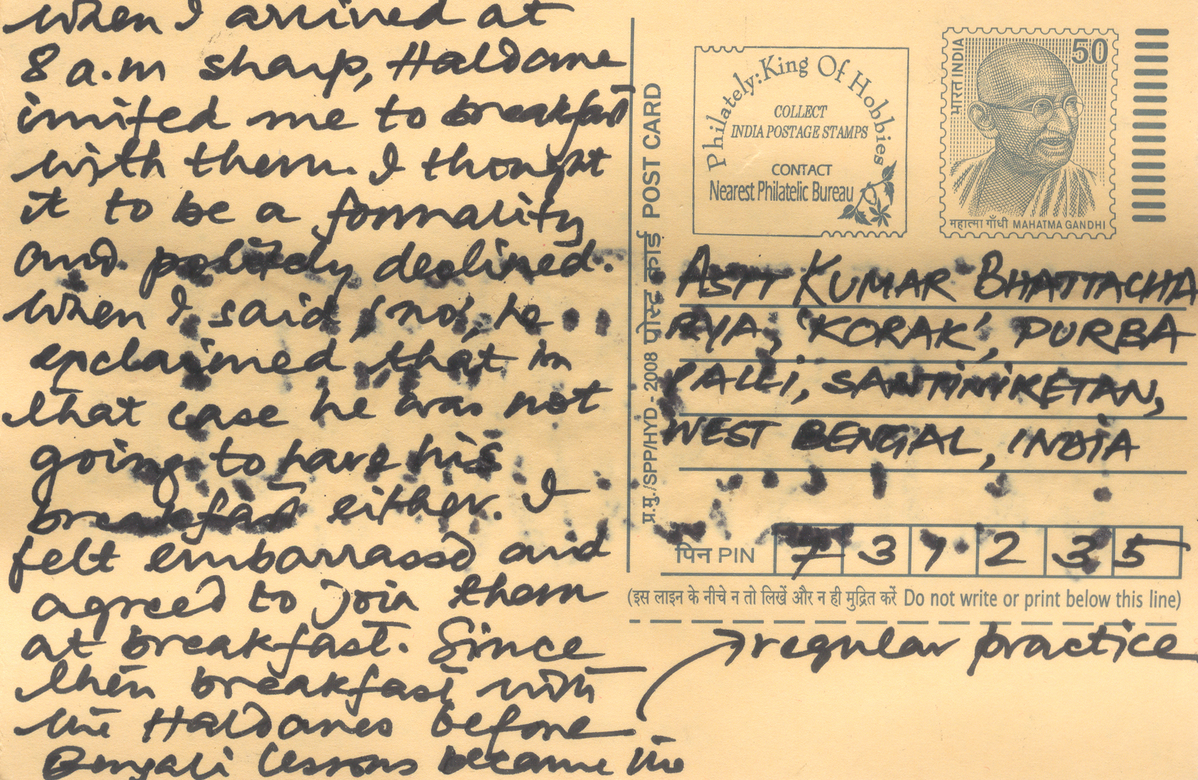 when I arrived at
8 a.m sharp, Haldane
invited me to breakfast
with them. I thought
it to be a formality
and politely declined.
When I said 'no', he
exclaimed that in
that case he was not
going to have his
breakfast either. I
felt embarrassed and
agreed to join them
at breakfast. Since
then breakfast with
the Haldanes before
Bengali lessons became the
regular practice
प्र.मु./SPP/HYD - 2008 पोस्ट कार्ड POST CARD
Philately: King Of Hobbies
COLLECT
INDIA POSTAGE STAMPS
CONTACT
Nearest Philatelic Bureau
भारत INDIA
50
महात्मा गाँधी MAHATMA GANDHI
ASIT KUMAR BHATTACHA
RYA, 'KORAK', PURBA
PALLI, SANTINIKETAN,
WEST BENGAL, INDIA
पिन PIN 731235
(इस लाइन के नीचे न तो लिखें और न ही मुद्रित करें Do not write or print below this line)